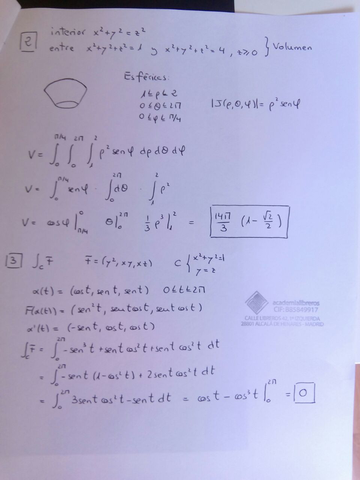 2 interior x²+y²=z²
entre x²+y²+z²=1 y x²+y²+z²=4, z≥0 } Volumen
Esféricas:
1≤ρ≤2
0≤θ≤2π |J(ρ,θ,φ)|=ρ² senφ
0≤φ≤π/4
V = ∫₀^{π/4} ∫₀^{2π} ∫₁² ρ² senφ dρ dθ dφ
V = ∫₀^{π/4} senφ ∫₀^{2π} dθ ∫₁² ρ²
V = cosφ |_{π/4}^0 θ|₀^{2π} 1/3 ρ³|₁² = 14π/3 (1-√2/2)
3 ∫_C F̄ F̄=(y², xy, xz) C { x²+y²=1
y=z
α(t) = (cost, sent, sent) 0≤t≤2π
F(α(t)) = (sen²t, sentcost, sent cost)
α'(t) = (-sent, cost, cost)
∫_C F̄ = ∫₀^{2π} -sen³t + sent cos²t + sent cos²t dt
= ∫₀^{2π} -sent (1-cos²t) + 2sent cos²t dt
= ∫₀^{2π} 3sent cos²t - sent dt = cost - cos³t |₀^{2π} = 0
academialibreros